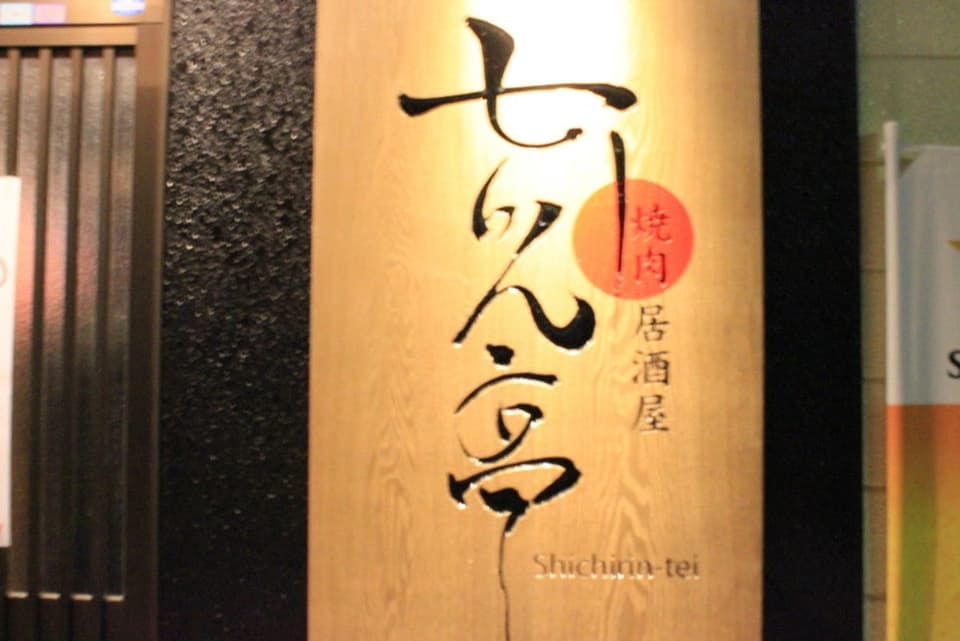 焼肉居酒屋
七りん亭
Shichirin-tei